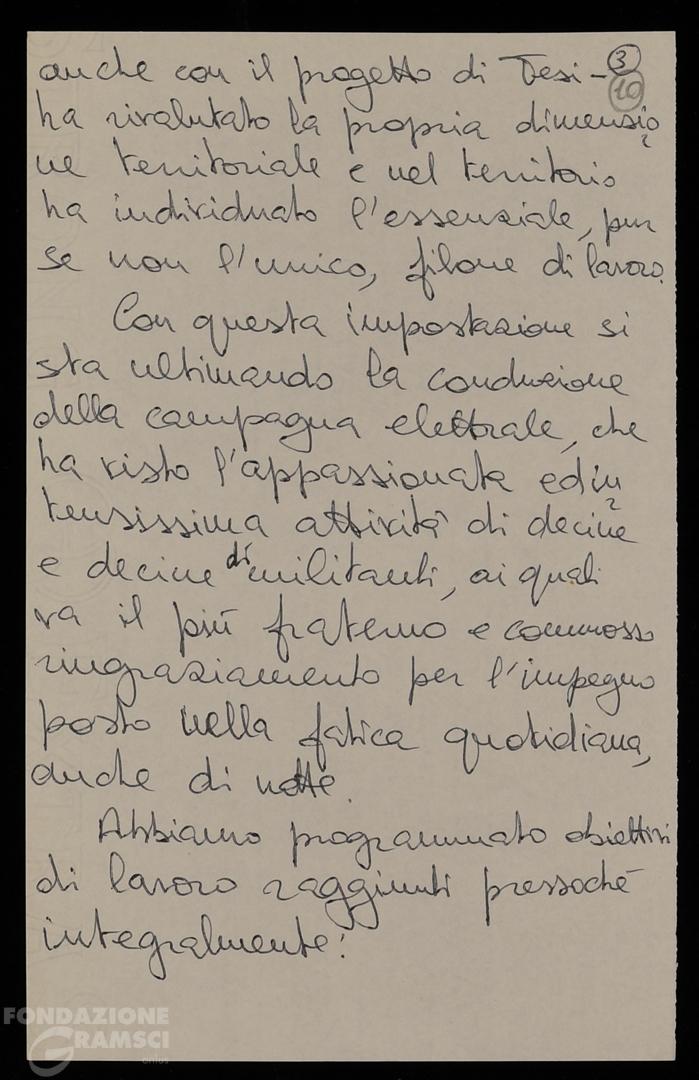 3
10
anche con il progetto di Tesi -
ha rivalutato la propria dimensio
ne territoriale e nel territorio
ha individuato l'essenziale, pur
se non l'unico, filone di lavoro.
Con questa impostazione si
sta ultimando la conduzione
della campagna elettorale, che
ha visto l'appassionata ed in
tensissima attività di decine
e decine di militanti, ai quali
va il più fraterno e commosso
ringraziamento per l'impegno
posto nella fatica quotidiana,
anche di notte.
Abbiamo programmato obiettivi
di lavoro raggiunti pressoché
integralmente:
FONDAZIONE
GRAMSCI
onlus